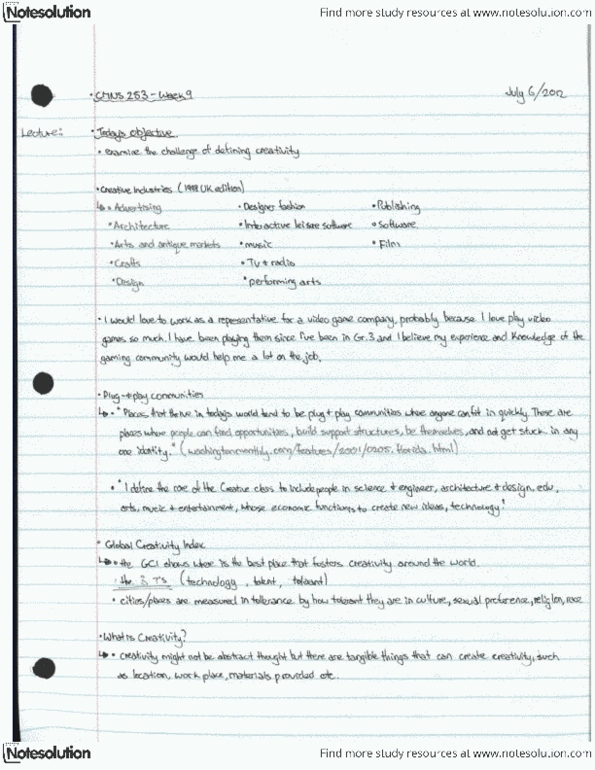 Notesolution
Find more study resources at www.notesolution.com
• CMNS 253 - Week 9
July 6/2012
Lecture:
• Todays objective
• examine the challenge of defining creativity
• Creative Industries (1998 UK edition)
↳ • Advertising
• Designer fashion
• Publishing
• Architecture
• Interactive leisure software
• Software
• Arts and antique markets
• music
• Film
• Crafts
• Tv + radio
• Design
• performing arts
• I would love to work as a representative for a video game company, probably because I love play video
games so much. I have been playing them since I've been in Gr.3 and I believe my experience and knowledge of the
gaming community would help me a lot on the job.
• Plug-+play communities
↳ • "Places that thrive in todays world tend to be plug + play communities where anyone can fit in quickly. These are
places where people can find opportunities, build support structures, be themselves, and not get stuck in any
one identity." (washingtonmonthly.com/features/2001/0205.florida.html)
• "I define the core of the Creative class to include people in science + engineer, architecture + design, edu,
arts, music + entertainment, whose economic functions to create new ideas, technology"
• Global Creativity Index
↳ • the GCI shows where is the best place that fosters creativity around the world.
• the 3 T's (technology, talent, tolerant)
• cities/places are measured in tolerance by how tolerant they are in culture, sexual preference, religion, race
• What is Creativity?
↳ • creativity might not be abstract thought but there are tangible things that can create creativity, such
as location, work place, materials provided etc.
Notesolution
Find more study resources at www.notesolution.com